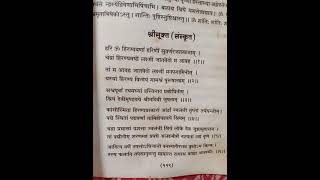 शान्तिः
श्रीसूक्त (संस्कृत)
हरि ॐ हिरण्यवर्णां हरिणीं सुवर्णरजतस्रजाम् ।
चंद्रां हिरण्मयीं लक्ष्मीं जातवेदो म आवह ॥१॥
तां म आवह जातवेदो लक्ष्मी मनपगामिनीम् ।
यस्यां हिरण्यं विन्देयं गामश्वं पुरुषानहम् ॥२॥
अश्वपूर्वां रथमध्यां हस्तिनाद प्रबोधिनीम् ।
श्रियं देवीमुपह्वये श्रीर्मादेवी जुषताम् ॥३॥
कांसोस्मितां हिरण्यप्राकारां आर्द्रां ज्वलंतीं तृप्तां तर्पयन्तीम् ।
पद्मे स्थितां पद्मवर्णां तामिहोपह्वये श्रियम् ॥४॥
चंद्रां प्रभासां यशसा ज्वलन्तीं श्रियं लोके देव जुष्टामुदाराम् ।
तां पद्मिनीमीं शरणमहं प्रपद्ये अलक्ष्मीर्मे नश्यतां त्वां वृणे ॥५॥
आदित्य वर्णे तपसोऽधिजातो वनस्पतिस्तव वृक्षोऽथ बिल्वः ।
तस्य फलानि तपसानुदन्तु मायान्त रायाश्च बाह्या अलक्ष्मीः ॥६॥